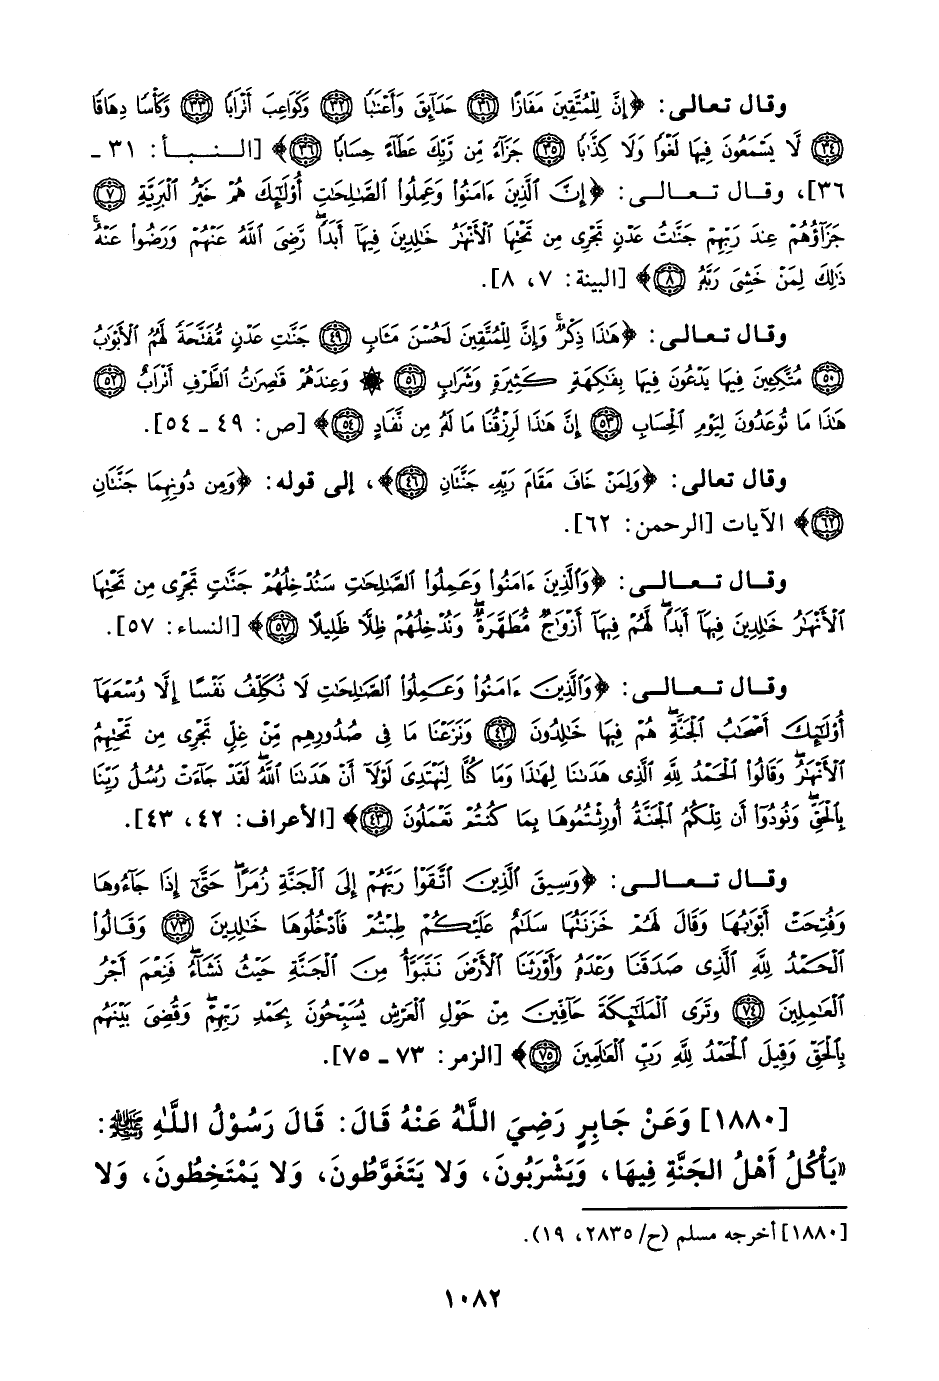 وقال تعالى: ﴿إِنَّ لِلْمُتَّقِينَ مَفَازًا ﴿٣١﴾ حَدَآئِقَ وَأَعْنَٰبًا ﴿٣٢﴾ وَكَوَاعِبَ أَتْرَابًا ﴿٣٣﴾ وَكَأْسًا دِهَاقًا
﴿٣٤﴾ لَّا يَسْمَعُونَ فِيهَا لَغْوًا وَلَا كِذَّٰبًا ﴿٣٥﴾ جَزَآءً مِّن رَّبِّكَ عَطَآءً حِسَابًا ﴿٣٦﴾﴾ [النبأ: ٣١ ـ
٣٦]، وقال تعالى: ﴿إِنَّ ٱلَّذِينَ ءَامَنُوا۟ وَعَمِلُوا۟ ٱلصَّٰلِحَٰتِ أُو۟لَٰٓئِكَ هُمْ خَيْرُ ٱلْبَرِيَّةِ ﴿٧﴾
جَزَآؤُهُمْ عِندَ رَبِّهِمْ جَنَّٰتُ عَدْنٍ تَجْرِى مِن تَحْتِهَا ٱلْأَنْهَٰرُ خَٰلِدِينَ فِيهَآ أَبَدًا ۖ رَّضِىَ ٱللَّهُ عَنْهُمْ وَرَضُوا۟ عَنْهُ ۚ
ذَٰلِكَ لِمَنْ خَشِىَ رَبَّهُۥ ﴿٨﴾﴾ [البينة: ٧، ٨].
وقال تعالى: ﴿هَٰذَا ذِكْرٌ ۚ وَإِنَّ لِلْمُتَّقِينَ لَحُسْنَ مَـَٔابٍ ﴿٤٩﴾ جَنَّٰتِ عَدْنٍ مُّفَتَّحَةً لَّهُمُ ٱلْأَبْوَٰبُ
﴿٥٠﴾ مُتَّكِـِٔينَ فِيهَا يَدْعُونَ فِيهَا بِفَٰكِهَةٍ كَثِيرَةٍ وَشَرَابٍ ﴿٥١﴾ ۞ وَعِندَهُمْ قَٰصِرَٰتُ ٱلطَّرْفِ أَتْرَابٌ ﴿٥٢﴾
هَٰذَا مَا تُوعَدُونَ لِيَوْمِ ٱلْحِسَابِ ﴿٥٣﴾ إِنَّ هَٰذَا لَرِزْقُنَا مَا لَهُۥ مِن نَّفَادٍ ﴿٥٤﴾﴾ [ص: ٤٩ ـ ٥٤].
وقال تعالى: ﴿وَلِمَنْ خَافَ مَقَامَ رَبِّهِۦ جَنَّتَانِ ﴿٤٦﴾﴾، إلى قوله: ﴿وَمِن دُونِهِمَا جَنَّتَانِ
﴿٦٢﴾﴾ الآيات [الرحمن: ٦٢].
وقال تعالى: ﴿وَٱلَّذِينَ ءَامَنُوا۟ وَعَمِلُوا۟ ٱلصَّٰلِحَٰتِ سَنُدْخِلُهُمْ جَنَّٰتٍ تَجْرِى مِن تَحْتِهَا
ٱلْأَنْهَٰرُ خَٰلِدِينَ فِيهَآ أَبَدًا ۖ لَّهُمْ فِيهَآ أَزْوَٰجٌ مُّطَهَّرَةٌ ۖ وَنُدْخِلُهُمْ ظِلًّا ظَلِيلًا ﴿٥٧﴾﴾ [النساء: ٥٧].
وقال تعالى: ﴿وَٱلَّذِينَ ءَامَنُوا۟ وَعَمِلُوا۟ ٱلصَّٰلِحَٰتِ لَا نُكَلِّفُ نَفْسًا إِلَّا وُسْعَهَآ
أُو۟لَٰٓئِكَ أَصْحَٰبُ ٱلْجَنَّةِ ۖ هُمْ فِيهَا خَٰلِدُونَ ﴿٤٢﴾ وَنَزَعْنَا مَا فِى صُدُورِهِم مِّنْ غِلٍّ تَجْرِى مِن تَحْتِهِمُ
ٱلْأَنْهَٰرُ ۖ وَقَالُوا۟ ٱلْحَمْدُ لِلَّهِ ٱلَّذِى هَدَىٰنَا لِهَٰذَا وَمَا كُنَّا لِنَهْتَدِىَ لَوْلَآ أَنْ هَدَىٰنَا ٱللَّهُ ۖ لَقَدْ جَآءَتْ رُسُلُ رَبِّنَا
بِٱلْحَقِّ ۖ وَنُودُوٓا۟ أَن تِلْكُمُ ٱلْجَنَّةُ أُورِثْتُمُوهَا بِمَا كُنتُمْ تَعْمَلُونَ ﴿٤٣﴾﴾ [الأعراف: ٤٢، ٤٣].
وقال تعالى: ﴿وَسِيقَ ٱلَّذِينَ ٱتَّقَوْا۟ رَبَّهُمْ إِلَى ٱلْجَنَّةِ زُمَرًا ۖ حَتَّىٰٓ إِذَا جَآءُوهَا
وَفُتِحَتْ أَبْوَٰبُهَا وَقَالَ لَهُمْ خَزَنَتُهَا سَلَٰمٌ عَلَيْكُمْ طِبْتُمْ فَٱدْخُلُوهَا خَٰلِدِينَ ﴿٧٣﴾ وَقَالُوا۟
ٱلْحَمْدُ لِلَّهِ ٱلَّذِى صَدَقَنَا وَعْدَهُۥ وَأَوْرَثَنَا ٱلْأَرْضَ نَتَبَوَّأُ مِنَ ٱلْجَنَّةِ حَيْثُ نَشَآءُ ۖ فَنِعْمَ أَجْرُ
ٱلْعَٰمِلِينَ ﴿٧٤﴾ وَتَرَى ٱلْمَلَٰٓئِكَةَ حَآفِّينَ مِنْ حَوْلِ ٱلْعَرْشِ يُسَبِّحُونَ بِحَمْدِ رَبِّهِمْ ۖ وَقُضِىَ بَيْنَهُم
بِٱلْحَقِّ وَقِيلَ ٱلْحَمْدُ لِلَّهِ رَبِّ ٱلْعَٰلَمِينَ ﴿٧٥﴾﴾ [الزمر: ٧٣ ـ ٧٥].
[١٨٨٠] وَعَنْ جَابِرٍ رَضِيَ اللَّهُ عَنْهُ قَالَ: قَالَ رَسُوْلُ اللَّهِ ﷺ:
«يَأْكُلُ أَهْلُ الجَنَّةِ فِيهَا، وَيَشْرَبُونَ، وَلا يَتَغَوَّطُونَ، وَلا يَمْتَخِطُونَ، وَلا
[١٨٨٠] أخرجه مسلم (ح/ ٢٨٣٥، ١٩).
١٠٨٢